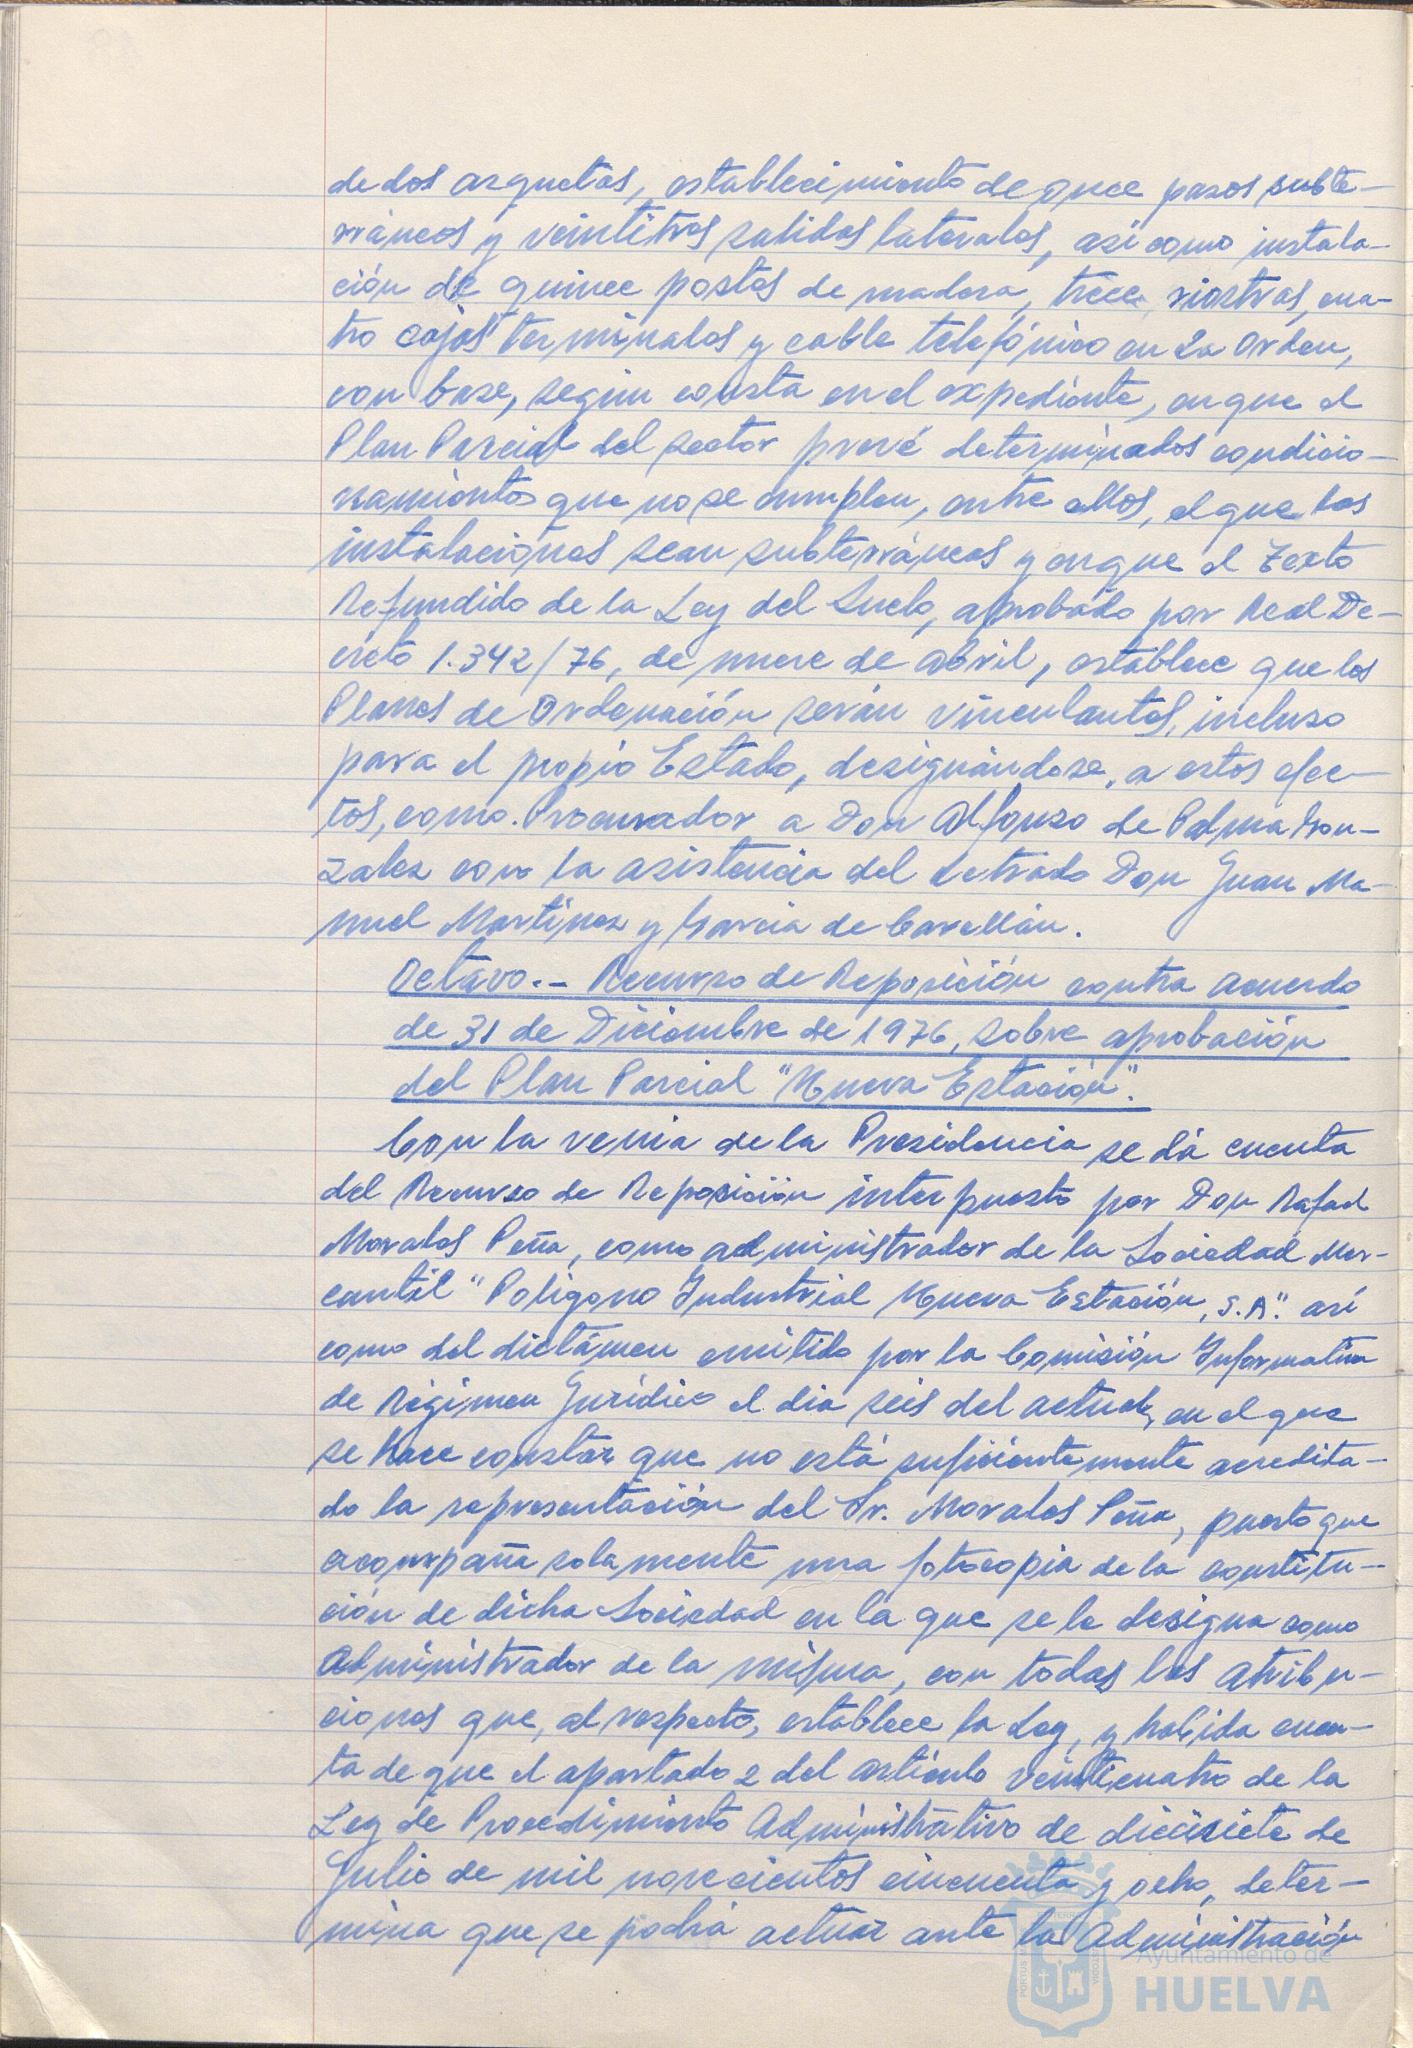 de dos arquetas, establecimiento de once pasos subte-
rráneos y veintitres salidas laterales, así como instala-
ción de quince postes de madera, trece riostras, cua-
tro cajas terminales y cable telefónico en La Orden,
con base, según consta en el expediente, en que el
Plan Parcial del sector prevé determinados condicio-
namientos que no se cumplen, entre ellos, el que las
instalaciones sean subterráneas y en que el Texto
Refundido de la Ley del Suelo, aprobado por Real De-
creto 1.342/76, de nueve de abril, establece que los
Planes de Ordenación serán vinculantes, incluso
para el propio Estado, designándose, a estos efec-
tos, como Procurador a Don Alfonso de Palma Gon-
zalez con la asistencia del Letrado Don Juan Ma-
nuel Martinez y Garcia de Carellán.
Octavo.- Recurso de Reposición contra acuerdo
de 31 de Diciembre de 1976, sobre aprobación
del Plan Parcial "Nueva Estación".
Con la venia de la Presidencia se dá cuenta
del Recurso de Reposición interpuesto por Don Rafael
Morales Peña, como administrador de la Sociedad Mer-
cantil "Poligono Industrial Nueva Estación, S.A." así
como del dictámen emitido por la Comisión Informativa
de Régimen Jurídico el dia seis del actual, en el que
se hace constar que no está suficientemente acredita-
do la representación del Sr. Morales Peña, puesto que
acompaña solamente una fotocopia de la constitu-
ción de dicha Sociedad en la que se le designa como
Administrador de la misma, con todas las atribu-
ciones que, al respecto, establece la Ley, y habida cuen-
ta de que el apartado 2 del artículo veinticuatro de la
Ley de Procedimiento Administrativo de diecisiete de
Julio de mil novecientos cincuenta y ocho, deter-
mina que se podrá actuar ante la Administración
Ayuntamiento de
HUELVA